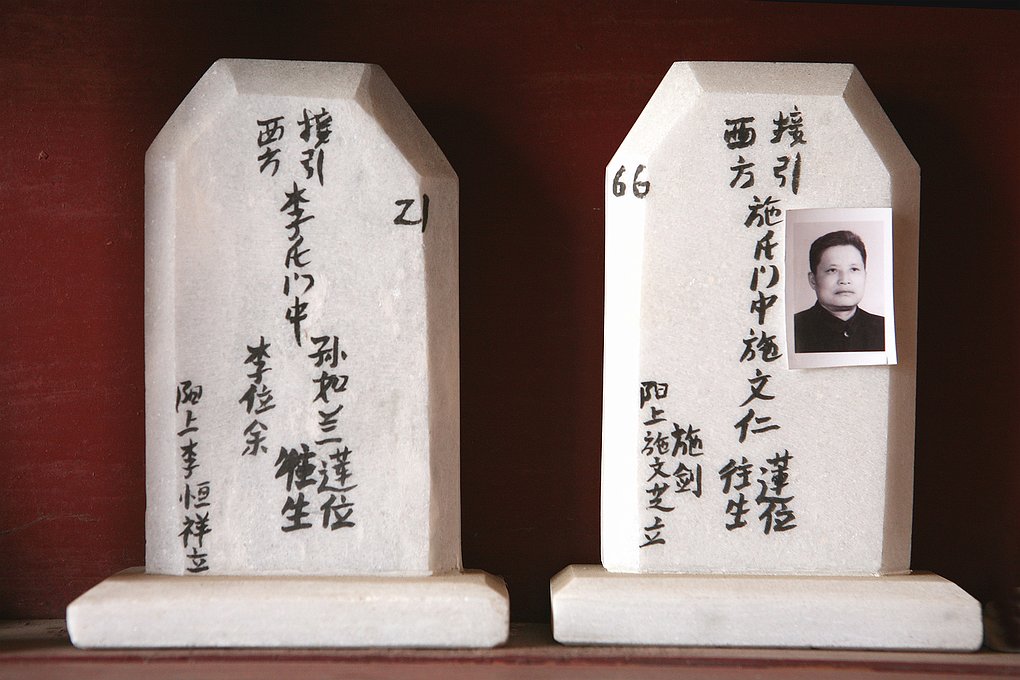 接引
西方
李氏门中
孙如兰
李位余
蓮位
往生
阳上李恒祥立
21
接引
西方
施氏门中施文仁
蓮位
往生
施剑
阳上施文芝立
66